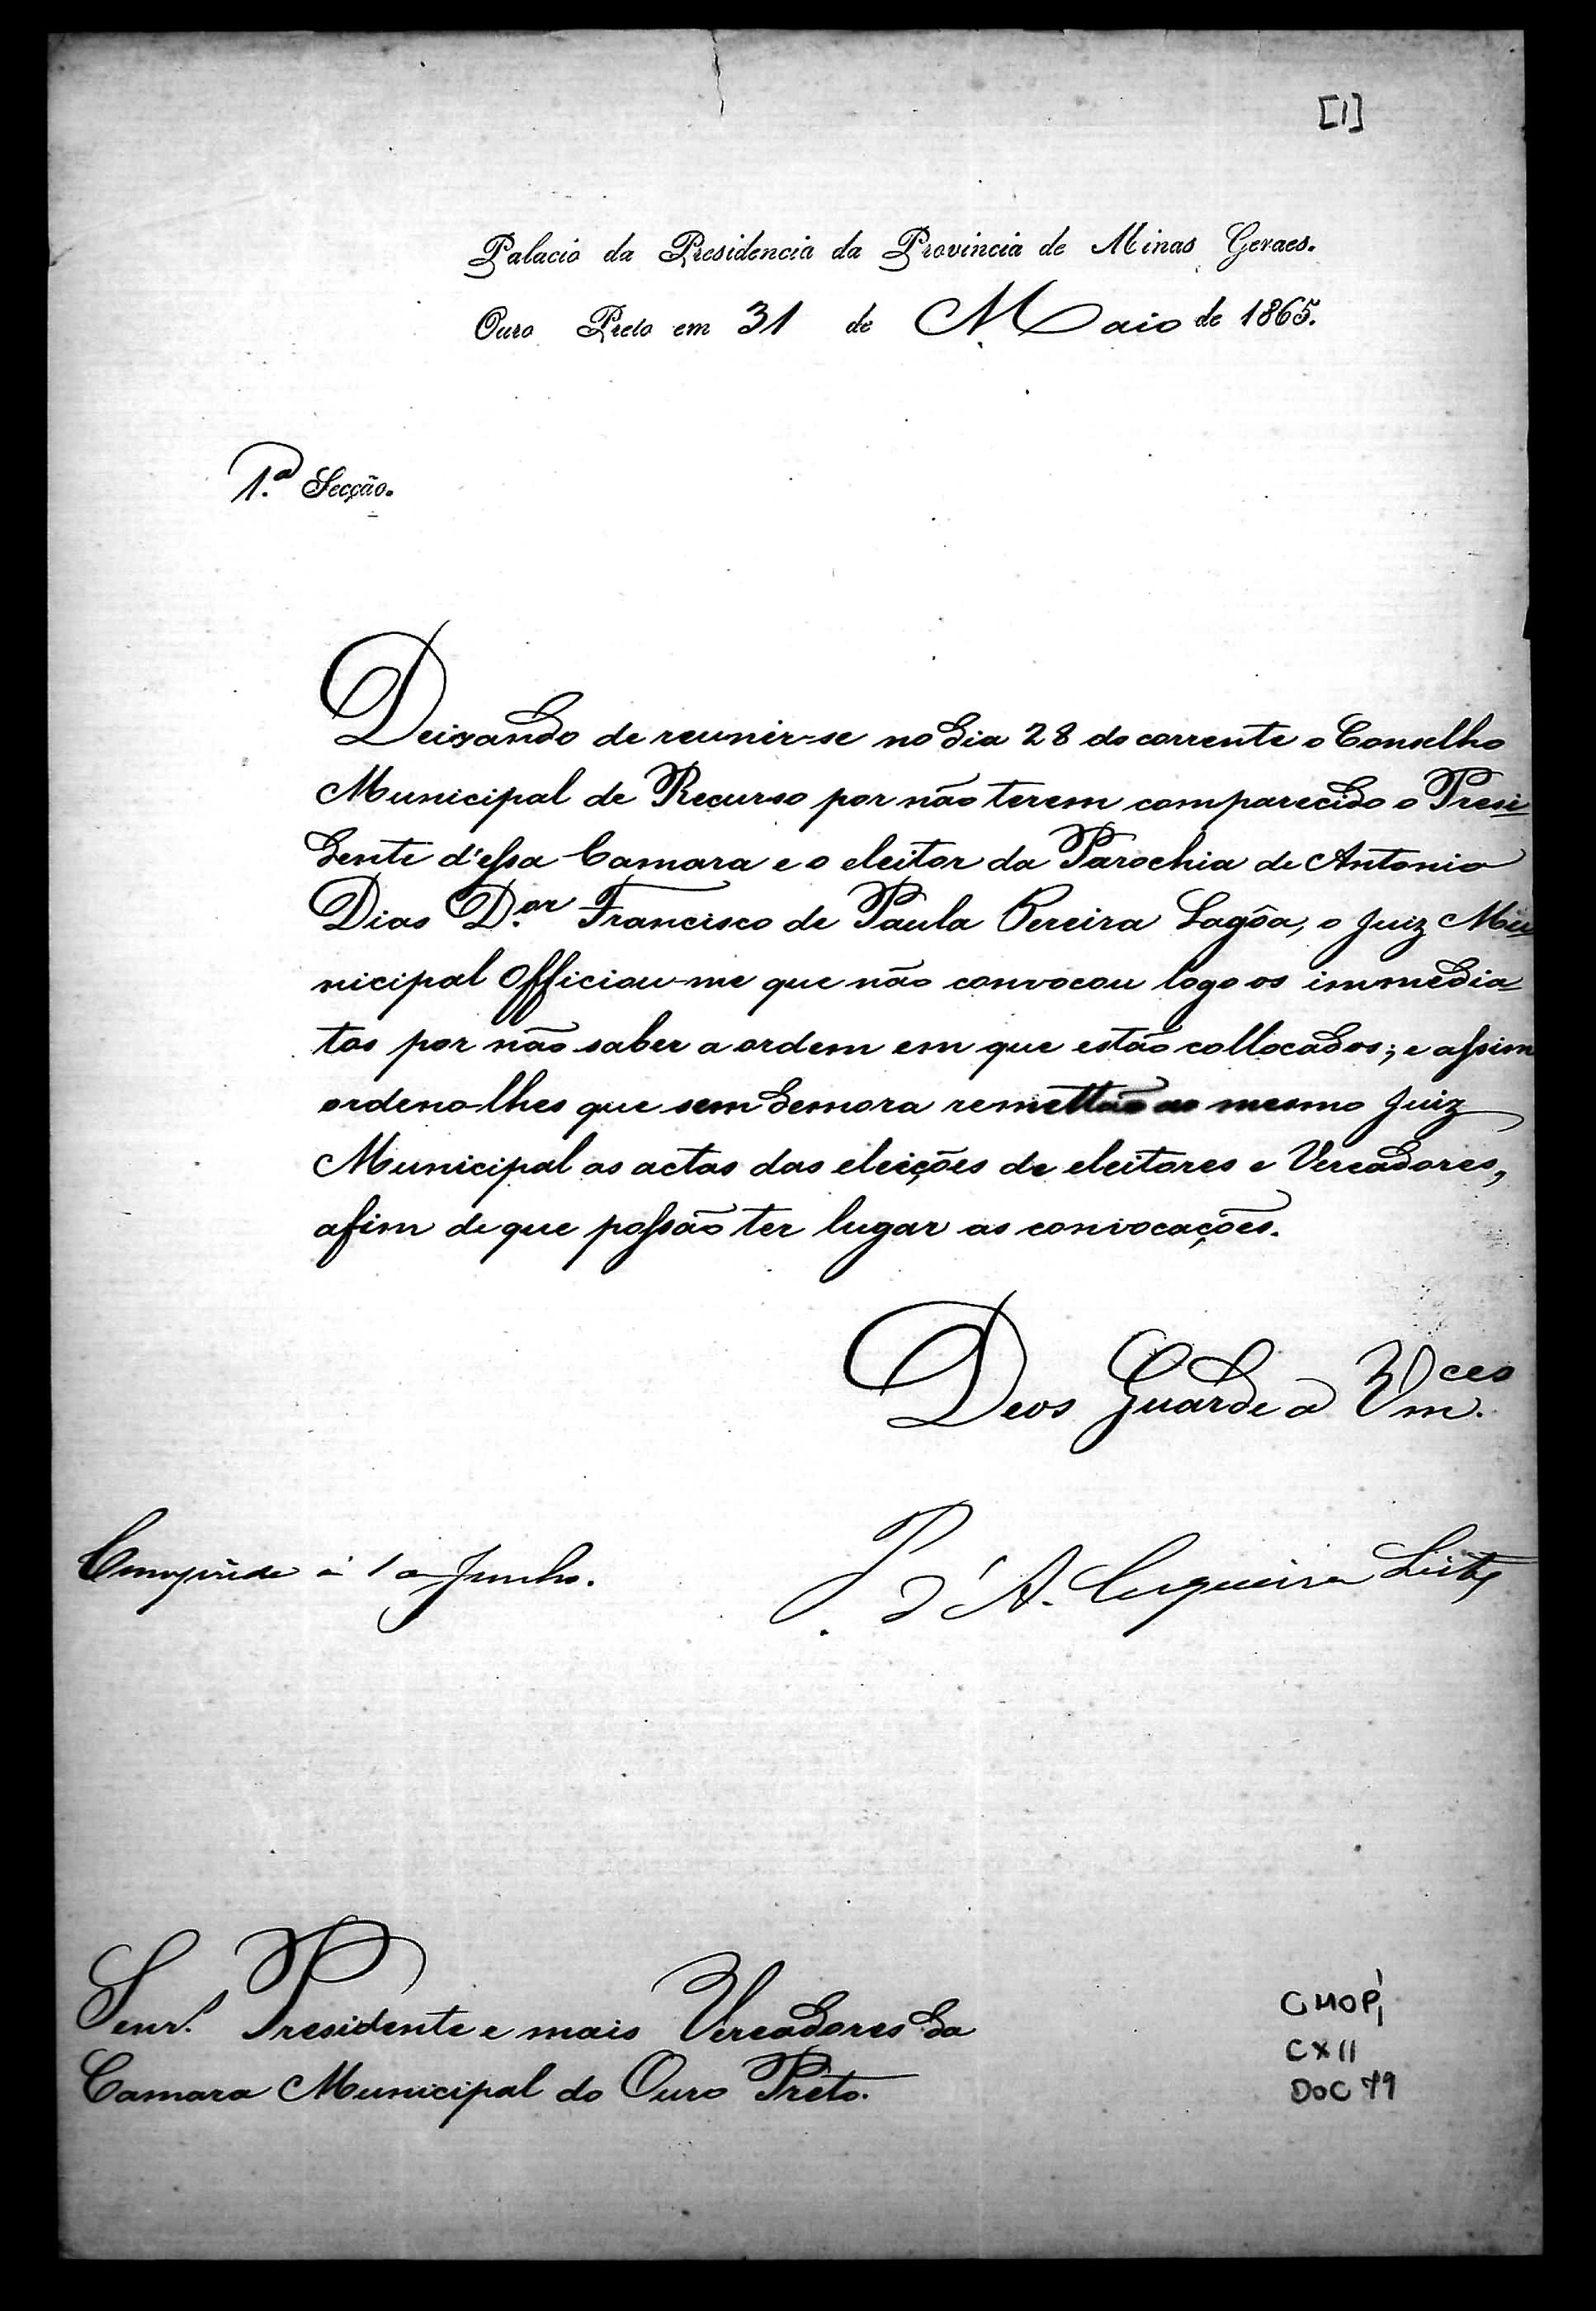 [1]
Palacio da Presidencia da Provincia de Minas Geraes.
Ouro Preto em 31 de Maio de 1865.
1.ª Secção.
Deixando de reunir-se no dia 28 do corrente o Conselho
Municipal de Recurso por não terem comparecido o Presi=
dente d'essa Camara e o eleitor da Parochia de Antonio
Dias D.or Francisco de Paula Pereira Lagôa, o Juiz Mu=
nicipal Officiou-me que não convocou logo os immedia=
tos por não saber a ordem em que estão collocados; e assim
ordeno-lhes que sem demora remettão ao mesmo Juiz
Municipal as actas das eleições de eleitores e Vereadores,
afim de que possão ter lugar as convocações.
Deos Guarde a Vm.ces
P. d'A. Cerqueira Leite
á 1 Junho.
Senr.s Presidente e mais Vereadores da
Camara Municipal do Ouro Prêto.
CMOP
CXII
DOC 79